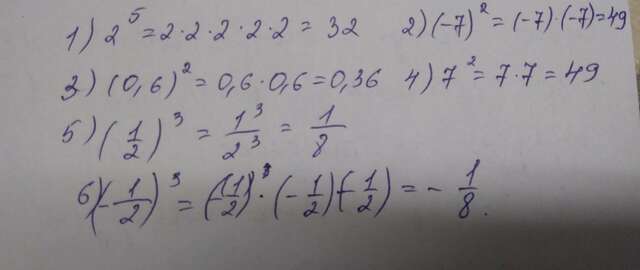 1) 2⁵ = 2·2·2·2·2 = 32 2) (-7)² = (-7)·(-7) = 49
3) (0,6)² = 0,6·0,6 = 0,36 4) 7² = 7·7 = 49
5) (1/2)³ = 1³/2³ = 1/8
6) (-1/2)³ = (-1/2)·(-1/2)(-1/2) = -1/8.